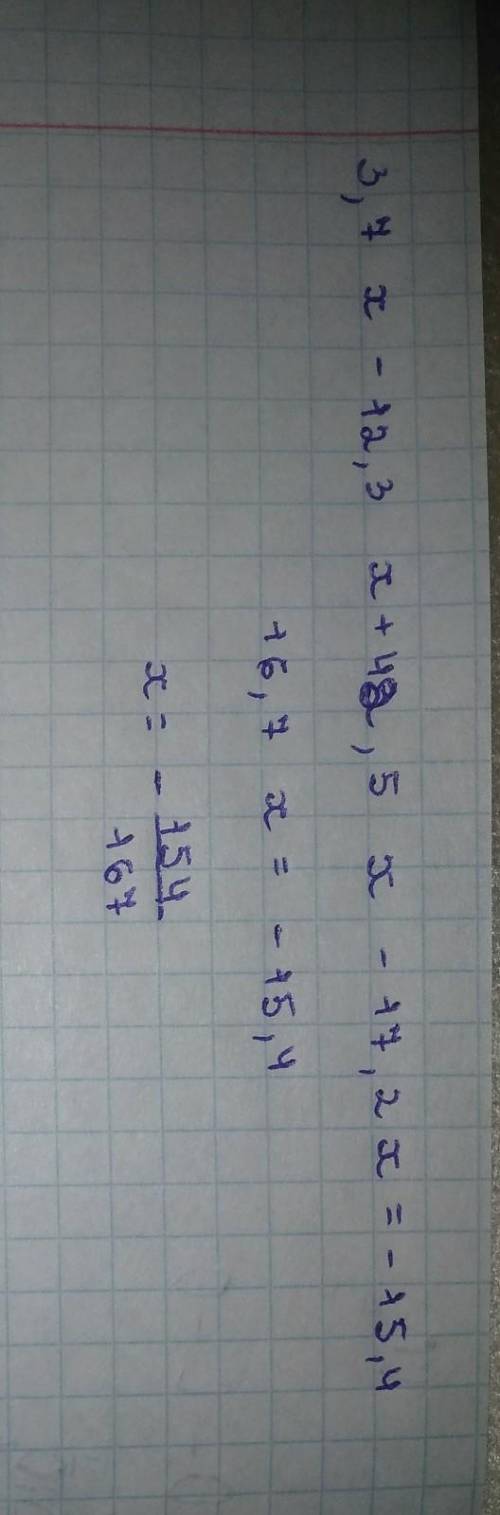 3,7 x - 12,3 x + 42,5 x - 17,2 x = - 15,4
16,7 x = - 15,4
x = - 154/167